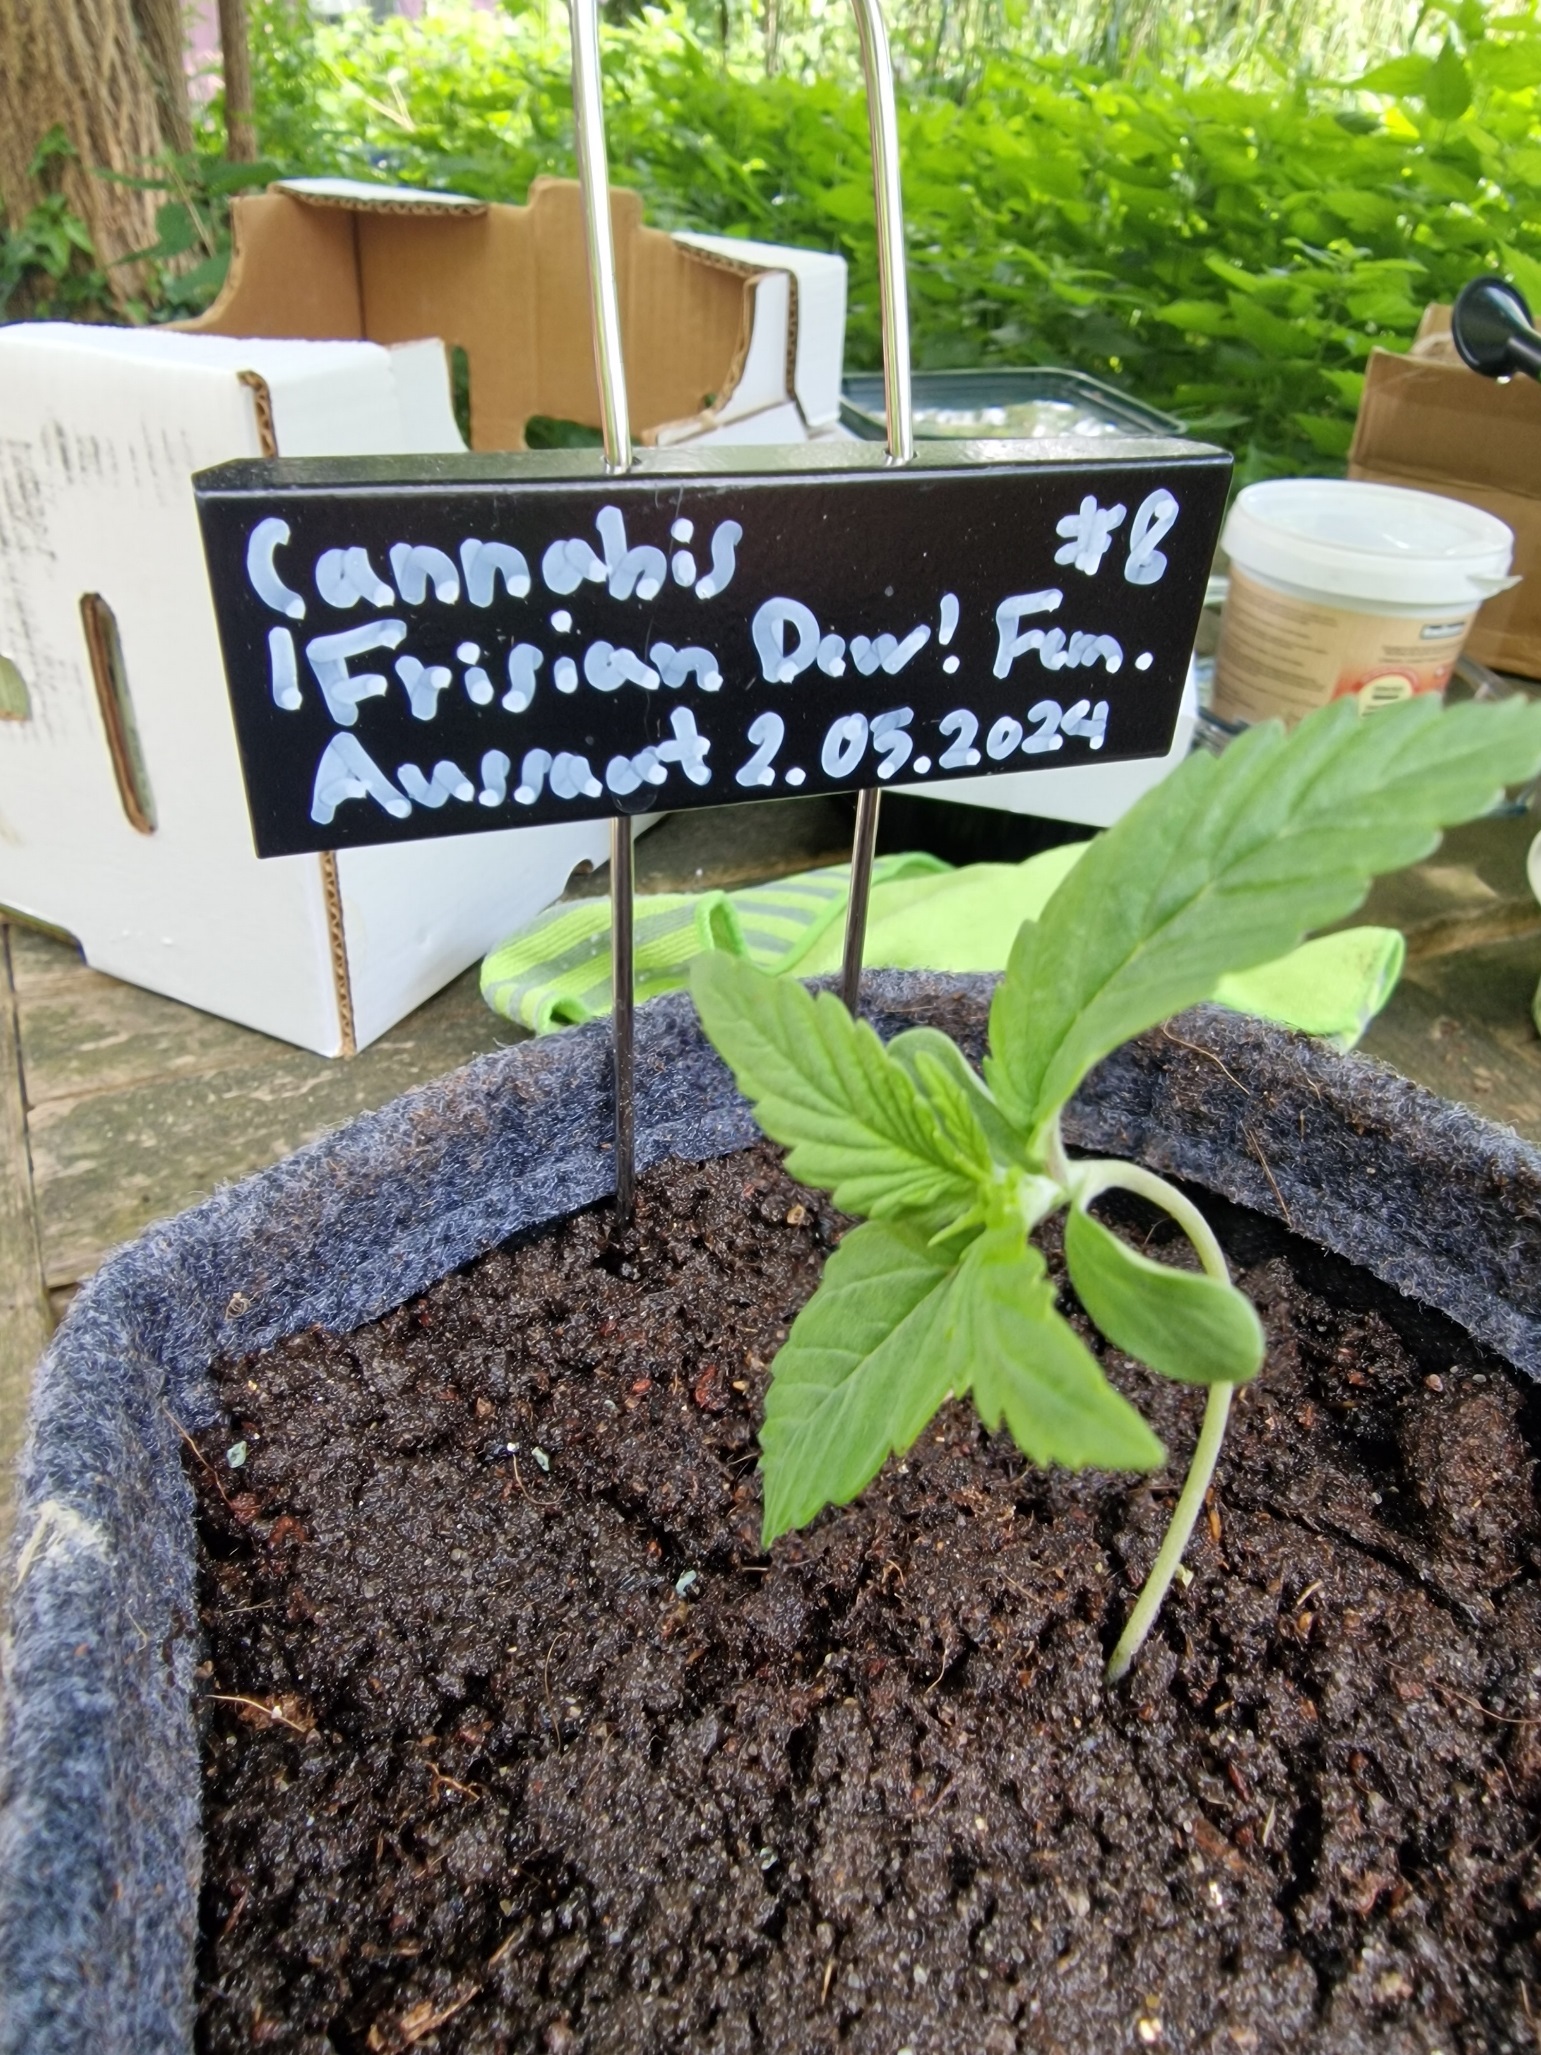 Cannabis #8
'Frisian Dew' Fem.
Aussaat 2.05.2024